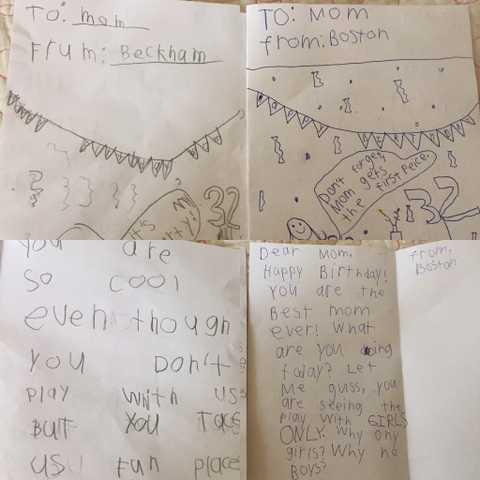 To: mom
Frum: Beckham
it's
rty!
32
TO: MOM
from: Boston
Don't forget,
Mom gets
the first Peice.
32
you are
so cool
even though
you Don't
Play with us
BuT you Tacs
us fun place
Dear Mom,
Happy Birthday!
You are the
Best mom
ever! What
are you doing
today? Let
Me guss, you
are seeing the
Play with GIRLS
ONLY. Why ony
girls? Why no
BOYS?
from,
Boston